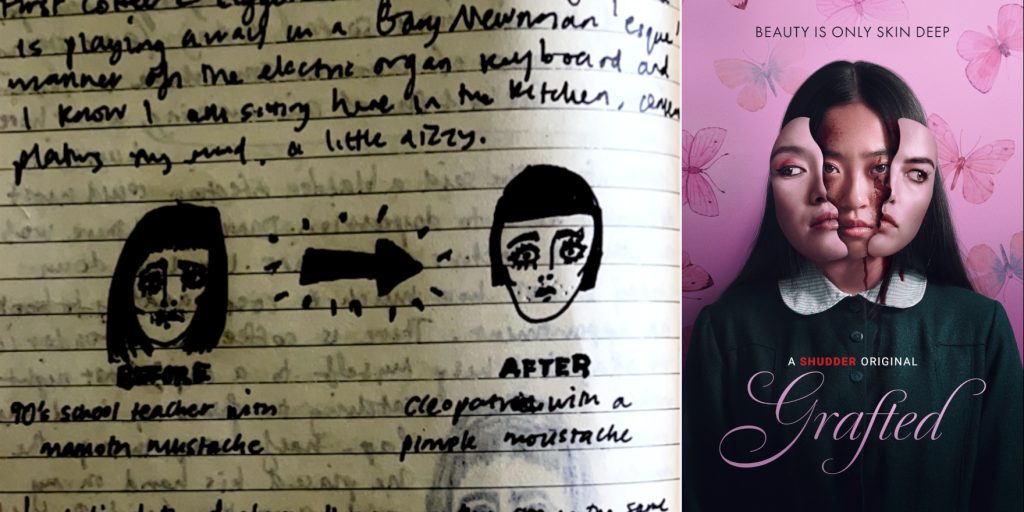 First coffee
is playing away in a Gary 'esque'
manner on the electric organ keyboard and
I know I am sitting here in the kitchen, contem
plating my mind, a little dizzy.
BEFORE
90's school teacher with
mamoth mustache
AFTER
Cleopatra with a
pimple moustache
the same
BEAUTY IS ONLY SKIN DEEP
A SHUDDER ORIGINAL
Grafted